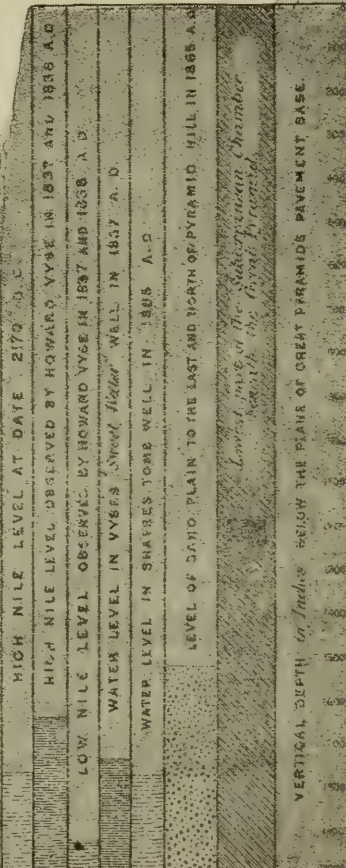 HIGH NILE LEVEL AT DATE 2170 B.C.
HIGH NILE LEVEL OBSERVED BY HOWARD VYSE IN 1837 AND 1838 A.D
LOW NILE LEVEL OBSERVED BY HOWARD VYSE IN 1837 AND 1838 A.D.
WATER LEVEL IN VYSES Sweet Water WELL IN 1837 A.D.
WATER LEVEL IN SHAFRES TOMB WELL IN 1865 A.D
LEVEL OF SAND PLAIN TO THE EAST AND NORTH OF PYRAMID HILL IN 1865 A.D
Lowest part of the Subterranean Chamber
beneath the Great Pyramid
VERTICAL DEPTH in Inches BELOW THE PLANE OF GREAT PYRAMIDS PAVEMENT BASE